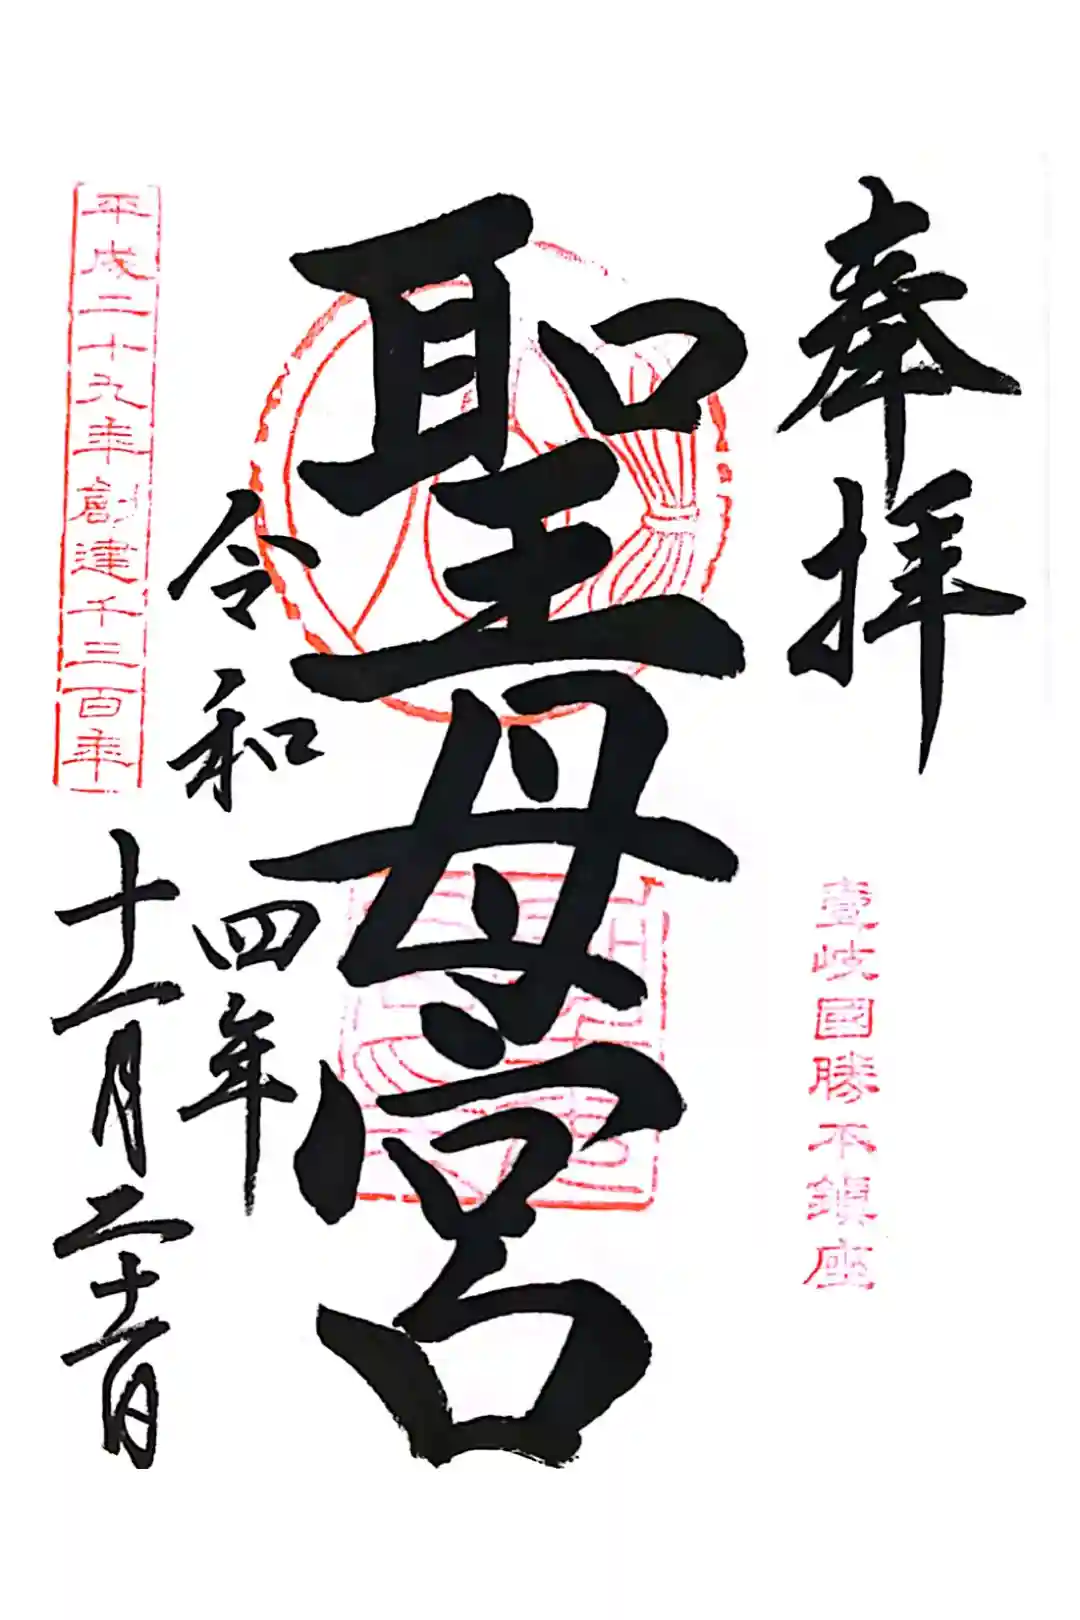 奉拝
壹岐國勝本鎮座
聖母宮
令和四年
十一月二十一日
平成二十九年創建千三百年